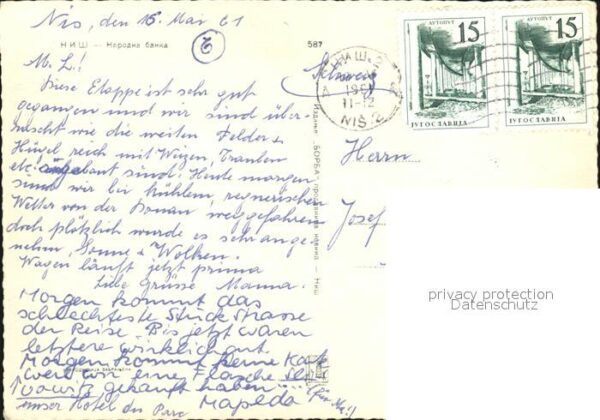 Nis, den 15. Mai 61
НИШ — Народна банка
587
M. L.!
Diese Etappe ist sehr gut
gegangen und wir sind über-
rascht wie die weiten Felder &
Hügel reich mit Weizen, Trauben
etc. angebaut sind. Heute morgen
sind wir bei kühlem, regnerischen
Wetter von der Donau weggefahren
doch plötzlich wurde es sehr ange-
nehm, Sonne & Wolken.
Wagen läuft jetzt prima
Liebe Grüsse Mamma.
Morgen kommt das
schlechteste Stück Strasse
der Reise. Bis jetzt waren
letztere wirklich gut.
Morgen kommt keine Karte
weil wir eine Flasche
gekauft haben
unser Hotel du Parc
Schweiz
АУТОПУТ
15
ЈУГОСЛАВИЈА
АУТОПУТ
15
ЈУГОСЛАВИЈА
НИШ 2
1961
11-12
NIŠ 2
Herrn
Josef
privacy protection
Datenschutz